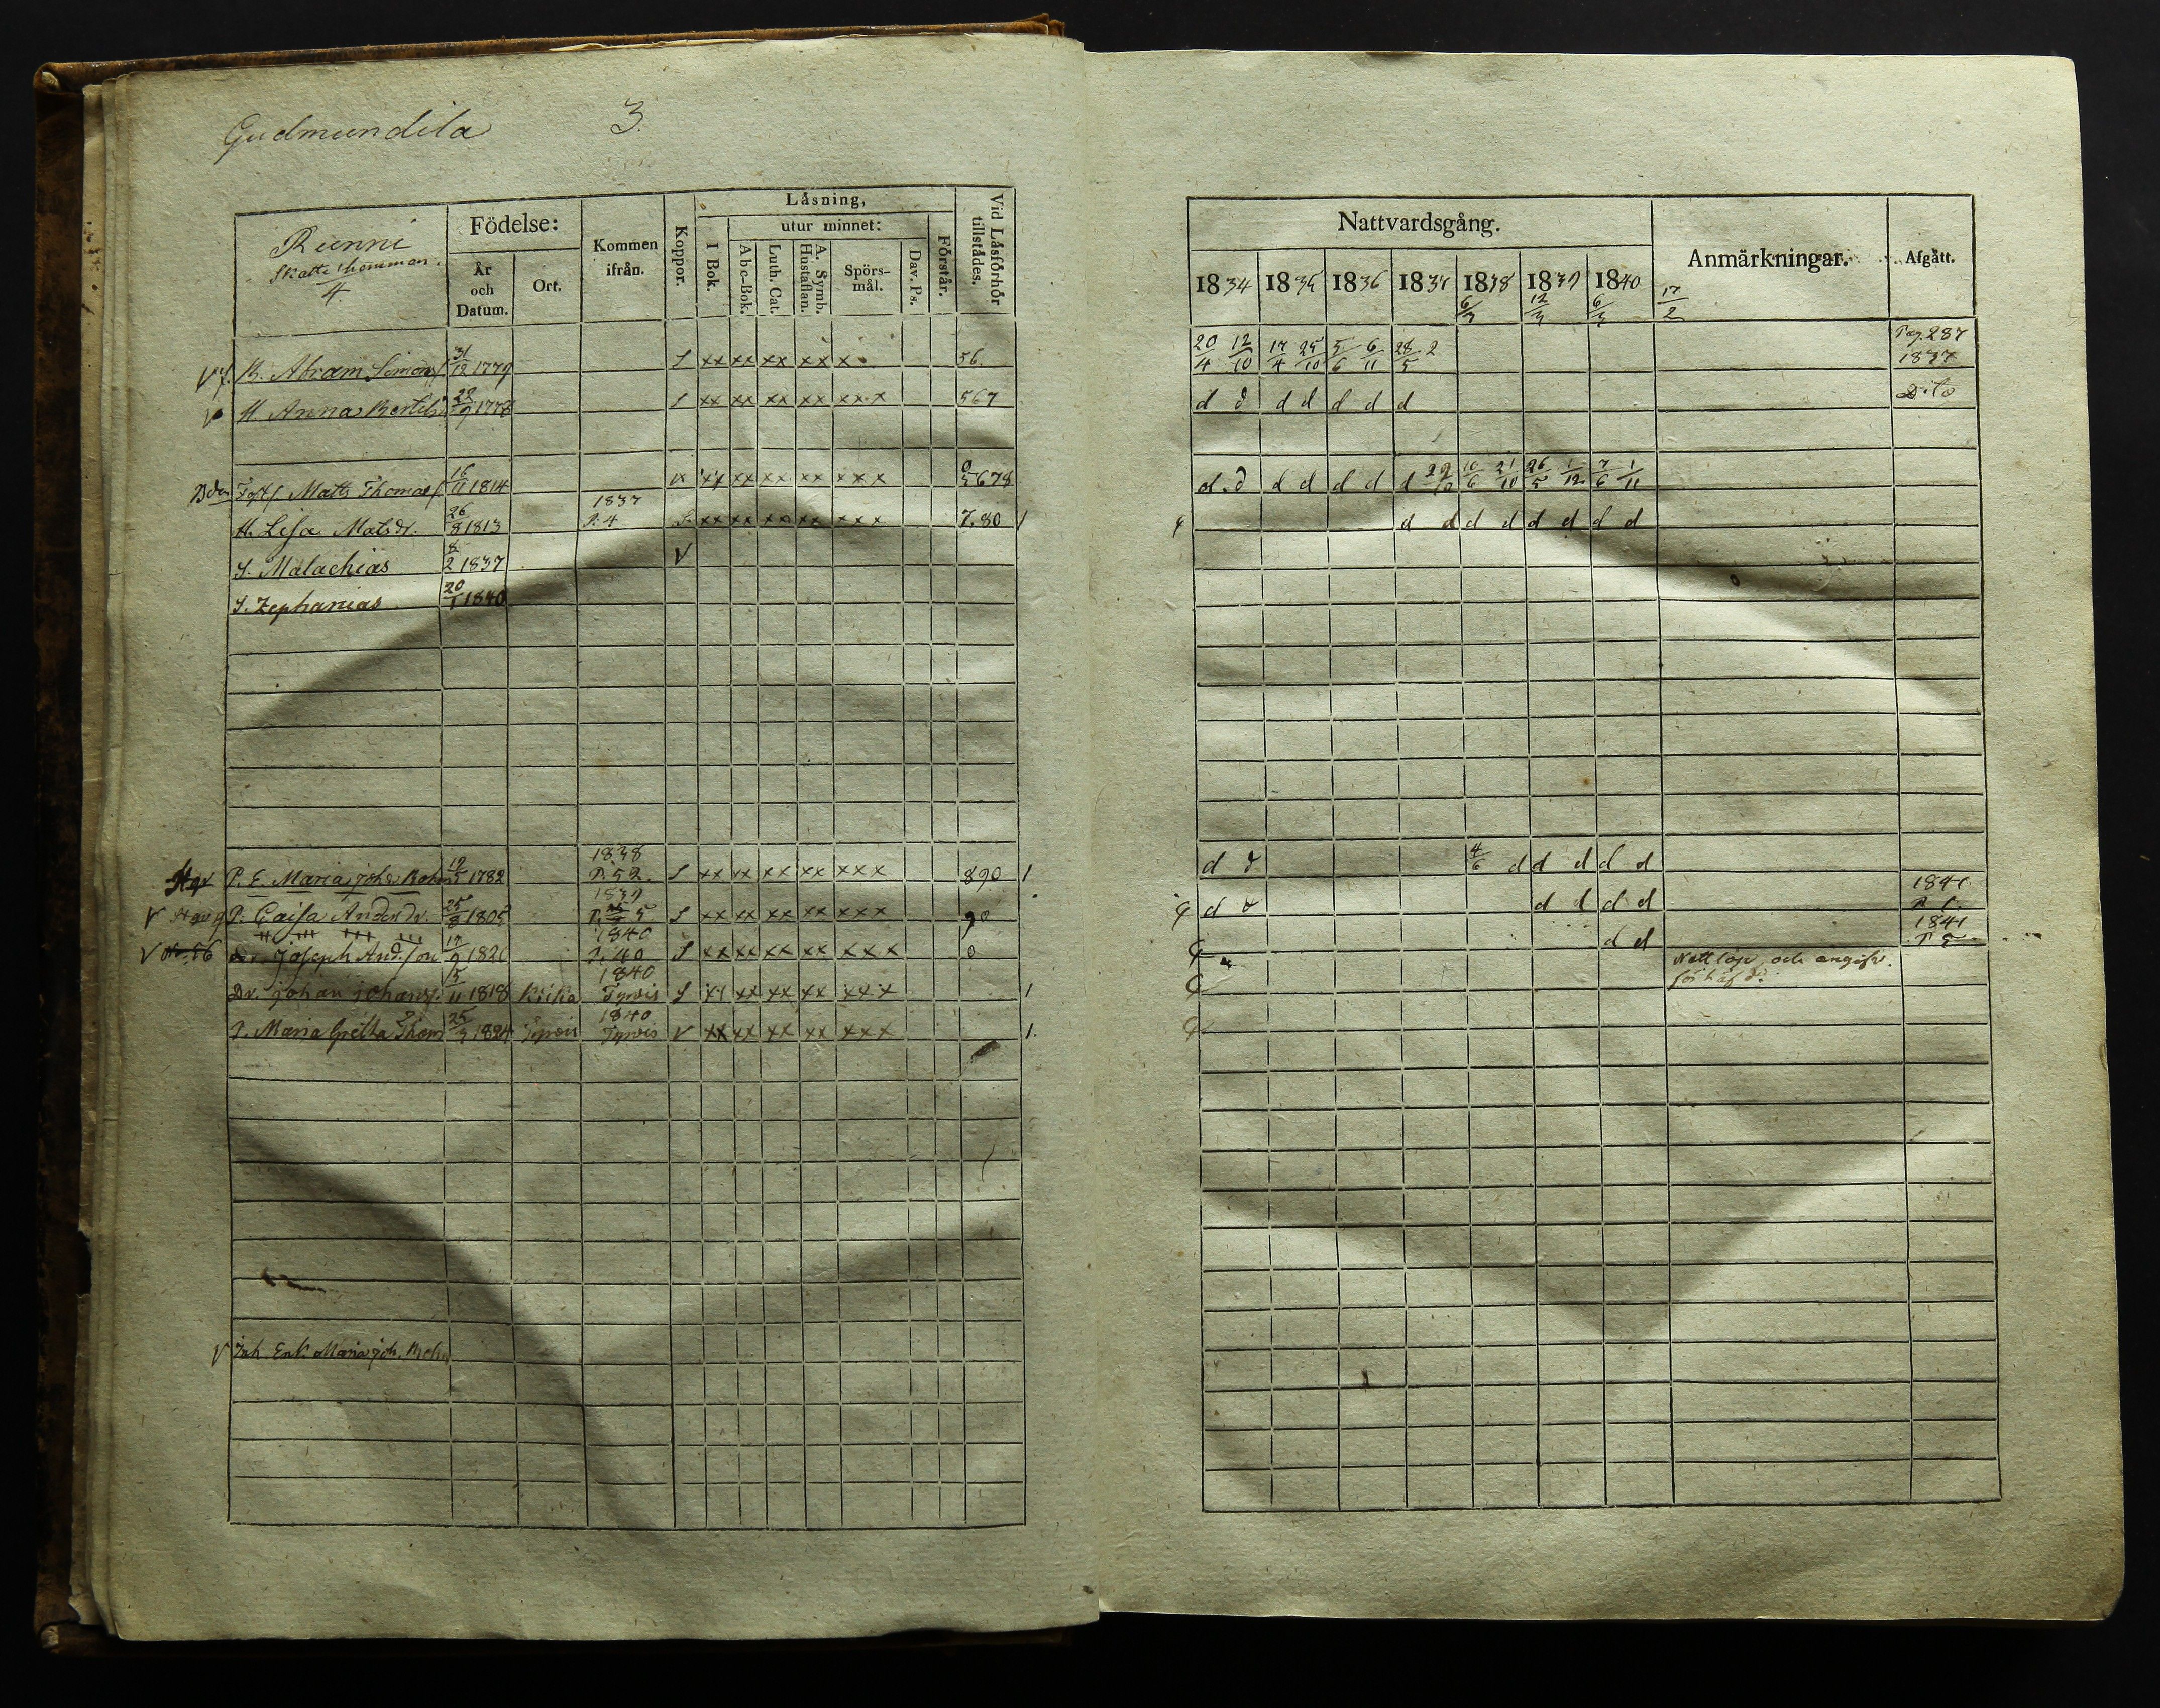 Gudmundila 3.
Runni
Skatte hemman.
4.
Födelse:
År och Datum.
Ort.
Kommen ifrån.
Koppor.
Låsning,
I Bok.
utur minnet:
Abc-Bok.
Luth. Cat.
A. Symb. Hustaflan.
Spörs-mål.
Dav. Ps.
Förstår.
Vid Låsförhör tillstådes.
B. Abram Simons 31/12 1779 S xx xx xx xx x 56.
H. Anna Bertils 28/9 1778 S xx xx xx xx xxx 567
Matts Thomas 16/11 1814 v xx xx xx xx xxx 5678
1837
H. Lisa Matsdr. 26/8 1813 P. 4 S. xx xx xx xx xxx 7.80 1
S. Malachias 8/2 1837 V
S. Zephanias 20/1 1840
1838
P. E. Maria Joh. Bohm 12/5 1782 P. 52. S xx xx xx xx xxx 890 1
1839
P. Caisa Andersdr. 25/8 1805 5 S xx xx xx xx xxx 90
1840
Joseph And.son 17/9 1820 P. 40 S xx xx xx xx xxx 0
1840
Dr. Johan Johans. 15/11 1818 Kiika Tyrvis S xx xx xx xx xxx 1
1840
P. Maria Gretha Thom 25/3 1824 Tyrvis Tyrvis V xx xx xx xx xxx 1.
V Inh. Enk. Maria Joh. Bohm
Nattvardsgång.
Anmärkningar.
Afgått.
1834 1835 1836 1837 1838 1839 1840
6/3 12/3 6/3 17/2
20/4 12/10 17/4 25/10 5/6 6/11 28/5 2 Pag. 287
1837
d d d d d d d Dito
d. d d d d d d 29/10 10/6 21/10 26/5 1/12 7/6 1/11
d d d d d d d d
d d 4/6 d d d d d
d d d d d d 1841
d d 1841
P 5
Nattlöp. och angifv.